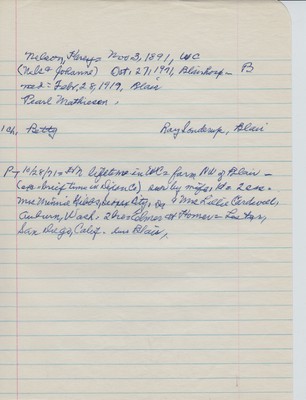 Nelson, Hans Nov 3, 1891, WC
(Nels & Johanne) Oct, 27, 1971, Blair Hosp - B
med = Feb, 28, 1919, Blair
Pearl Mathiesen,
1 Ch, Betty Ray Sonderup, Blair
P-T 10/28/71 = lifetime in WC = farm NW of Blair -
(exc. brief time in Defence) surv by wife; 1 da 2 sis =
Mrs Minnie City, Mrs Lillie Cardwell,
Auburn, Wash. 2 bros Elmer & Homer = Los
San Diego, Calif. Blair,